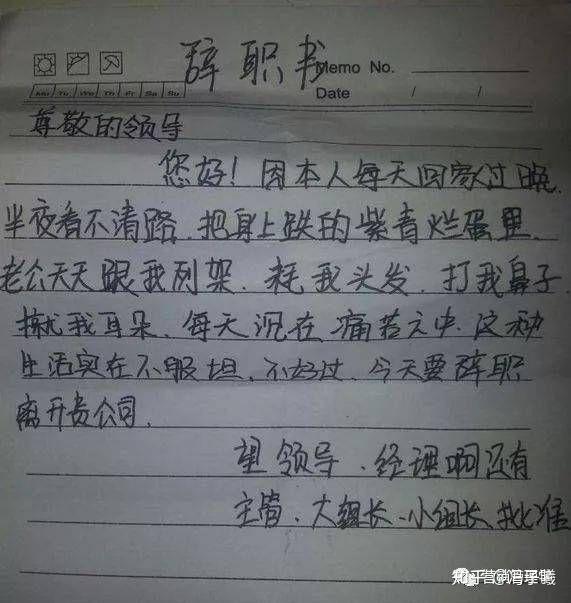 辞职书
Memo No.
Mo Tu We Th Fr Sa Su
Date / /
尊敬的领导
您好！因本人每天回家过晚.
半夜看不清路.把身上跌的紫青烂蛋里.
老公天天跟我列架.耗我头发.打我鼻子.
揪我耳朵.每天沉在痛苦之中.这种
生活实在不服坦.不好过.今天要辞职
离开贵公司.
望领导、经理啊还有
主管、大组长、小组长批准